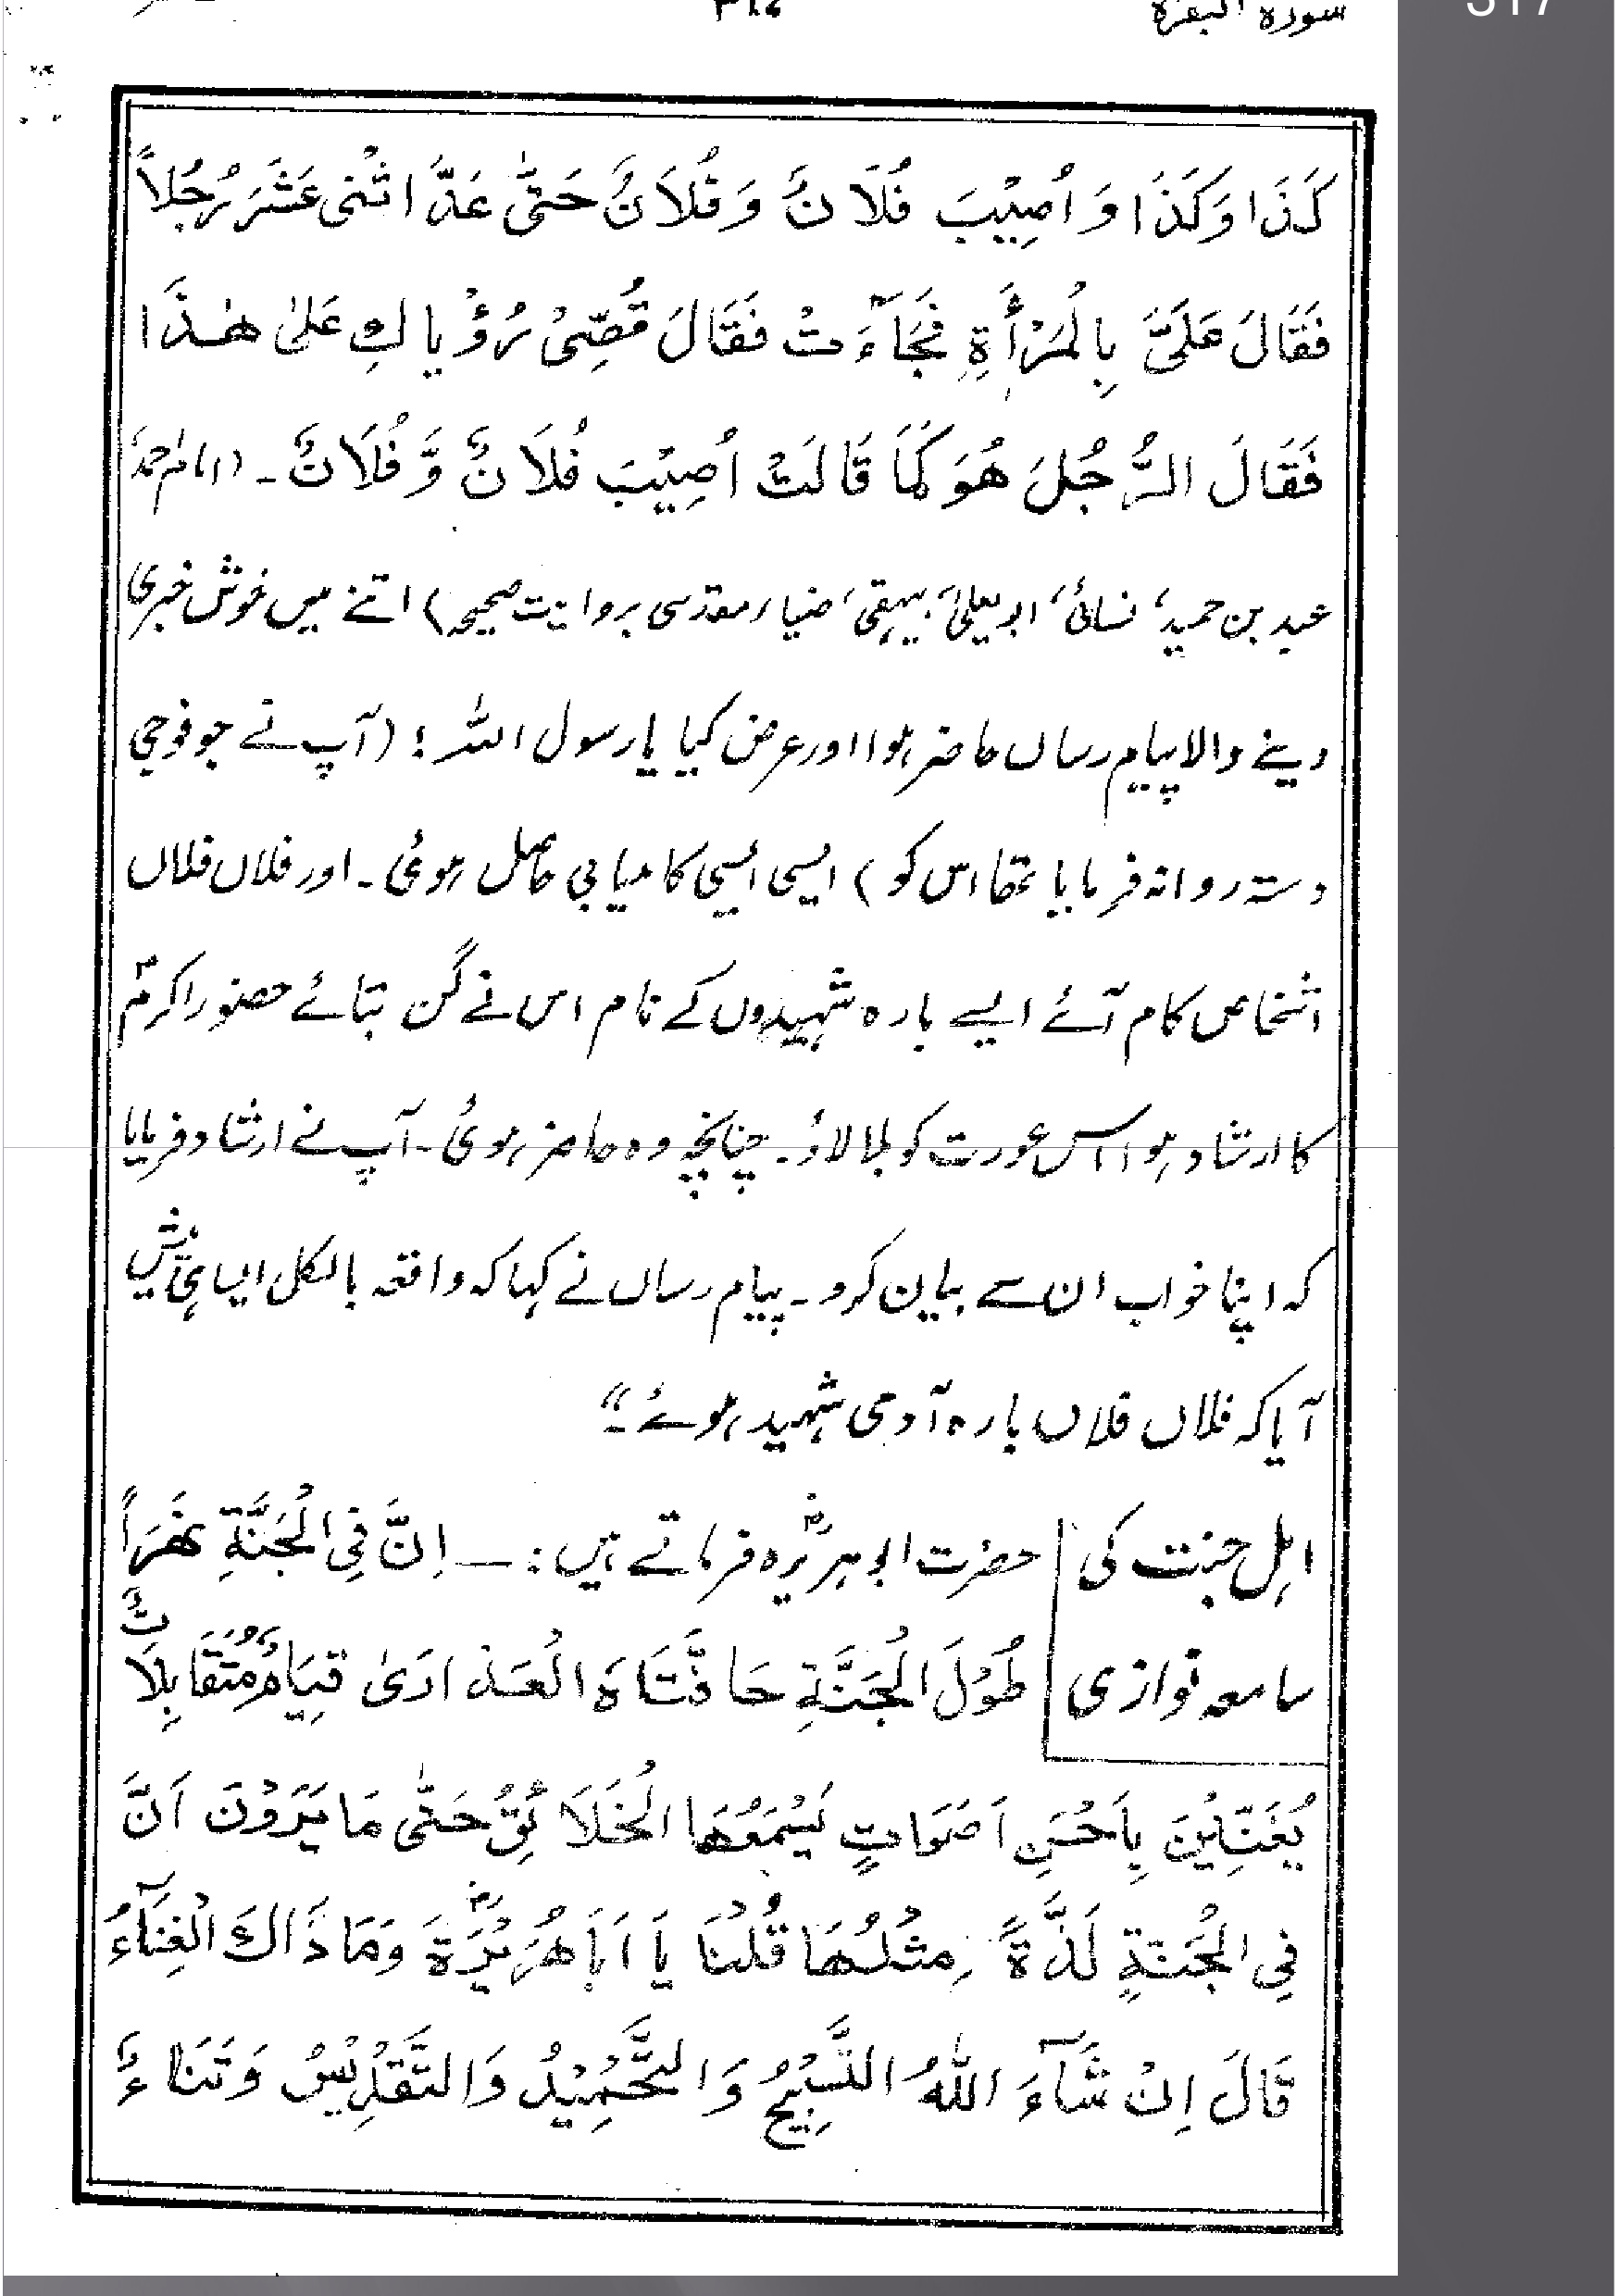 سورہ البقرۃ
۳۱۷
317
كَذَا وَكَذَا وَ اُصِيْبَ فُلَانٌ وَ فُلَانٌ حَتّٰى عَدَّ اثْنٰى عَشَرَ رَجُلاً
فَقَالَ عَلَىَّ بِالْمَرْأَةِ فَجَآءَتْ فَقَالَ قُصِّىْ رُؤْياكِ عَلىٰ هٰذَا
فَقَالَ الرَّجُلُ هُوَ كَمَا قَالَتْ اُصِيْبَ فُلَانٌ وَّ فُلَانٌ۔ (امام احمدؒ
عبد بن حمید، نسائی، ابو یعلیٰ، بیہقی، ضیاء مقدسی بروایت صحیحہ) اتنے میں خوش خبری
دینے والا پیام رساں حاضر ہوا اور عرض کیا یا رسول اللہ! (آپ نے جو فوجی
دستہ روانہ فرمایا تھا اس کو) ایسی ایسی کامیابی حاصل ہوئی۔ اور فلاں فلاں
اشخاص کام آئے ایسے بارہ شہیدوں کے نام اس نے گن بتائے حضور اکرمؐ
کا ارشاد ہوا اس عورت کو بلا لاؤ۔ چنانچہ وہ حاضر ہوئی۔ آپ نے ارشاد فرمایا
کہ اپنا خواب ان سے بیان کرو۔ پیام رساں نے کہا کہ واقعہ بالکل ایسا ہی پیش
آیا کہ فلاں فلاں بارہ آدمی شہید ہوئے۔"
اہلِ جنت کی حضرت ابوہریرہؓ فرماتے ہیں:— اِنَّ فِى الْجَنَّةِ نَهَراً
سامعہ نوازی طُوْلَ الْجَنَّةِ حَافَّتَاهُ الْعَذَارَىٰ قِيَامٌ مُتَقَابِلَاتٌ
يُغَنِّيْنَ بِاَحْسَنِ اَصْوَاتٍ يَسْمَعُهَا الْخَلَائِقُ حَتّٰى مَا يَرَوْنَ اَنَّ
فِى الْجَنَّةِ لَذَّةً مِثْلُهَا قُلْنَا يَا اَبَا هُرَيْرَةَؓ وَمَا ذَاكَ الْغِنَآءُ
قَالَ اِنْ شَآءَ اللّٰهُ التَّسْبِيْحُ وَ التَّحْمِيْدُ وَالتَّقْدِيْسُ وَثَنَاءٌ